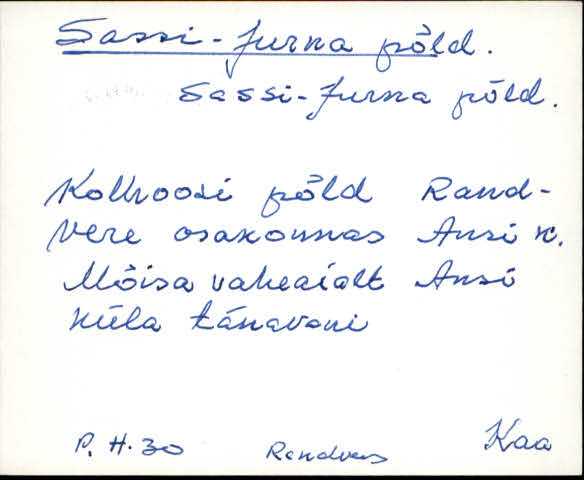 Sassi-Jurna põld.
Sassi-Jurna põld.
Kolhoosi põld Rand-
vere osakonnas Ansi k.
Mõisa vaheaialt Ansi
küla tänavani
P. H. 30 Randvere Kaa